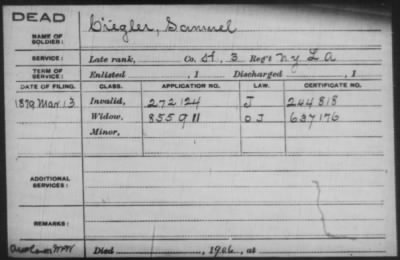 DEAD
NAME OF SOLDIER: Ziegler, Samuel
SERVICE: Late rank, Co. H, 3 Reg't N Y L A
TERM OF SERVICE: Enlisted , 1 Discharged , 1
DATE OF FILING. CLASS. APPLICATION NO. LAW. CERTIFICATE NO.
1879 Mar 13 Invalid, 272124 J 244818
Widow, 855911 O J 637176
Minor,
ADDITIONAL SERVICES:
REMARKS:
Died , 1906, at